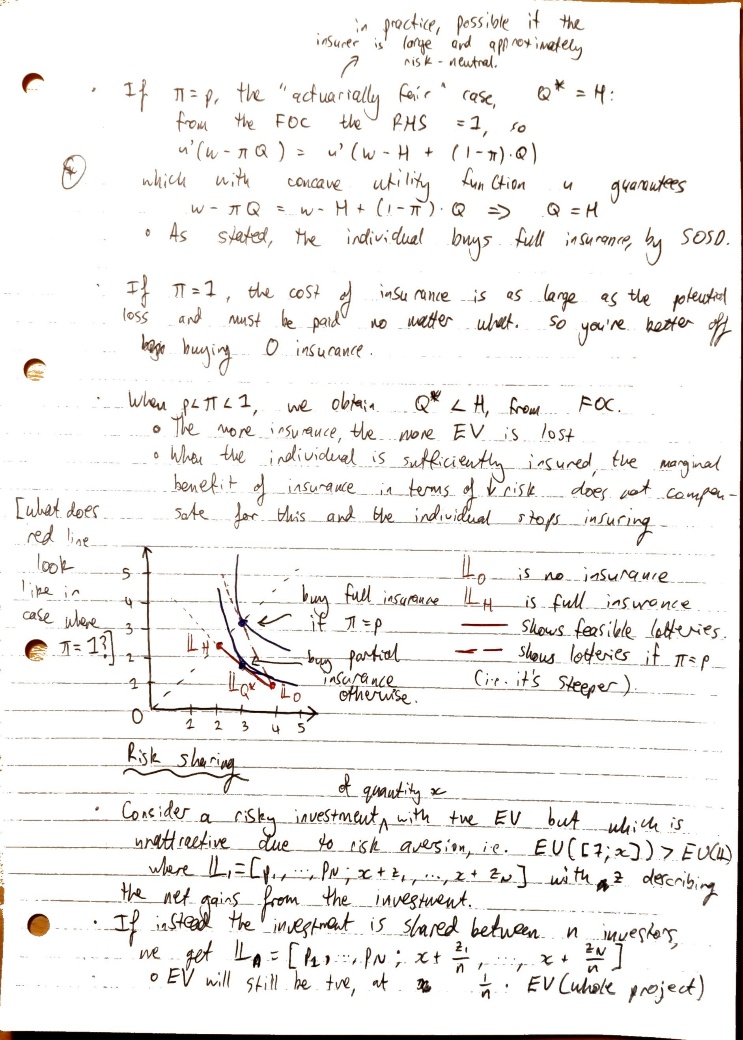 in practice, possible if the
insurer is large and approximately
risk-neutral.
· If π=p, the "actuarially fair" case, Q* = H:
from the FOC the RHS =1, so
u'(w-πQ) = u'(w-H + (1-π)·Q)
which with concave utility function u guarantees
w-πQ = w-H+(1-π)·Q ⇒ Q=H
∘ As stated, the individual buys full insurance, by SOSD.
· If π=1, the cost of insurance is as large as the potential
loss and must be paid no matter what. So you're better off
buying 0 insurance.
· When p<π<1, we obtain Q* < H, from FOC.
∘ The more insurance, the more EV is lost
∘ When the individual is sufficiently insured, the marginal
benefit of insurance in terms of ↓ risk does not compen-
sate for this and the individual stops insuring
[what does
red line
look
like in
case where
π=1?]
5
4
3
2
1
0
1 2 3 4 5
𝕃H
𝕃Q*
𝕃0
buy full insurance
if π=p
buy partial
insurance
otherwise.
𝕃0 is no insurance
𝕃H is full insurance
— shows feasible lotteries.
– – shows lotteries if π=p
(i.e. it's steeper).
Risk sharing
· Consider a risky investment of quantity x with +ve EV but which is
unattractive due to risk aversion, i.e. EU([1;x]) > EU(𝕃1)
where 𝕃1=[p1, ..., pN; x+z1, ..., x+zN] with z describing
the net gains from the investment.
· If instead the investment is shared between n investors,
we get 𝕃n = [p1, ..., pN; x+z1/n, ..., x+zN/n]
∘ EV will still be +ve, at 1/n · EV(whole project)